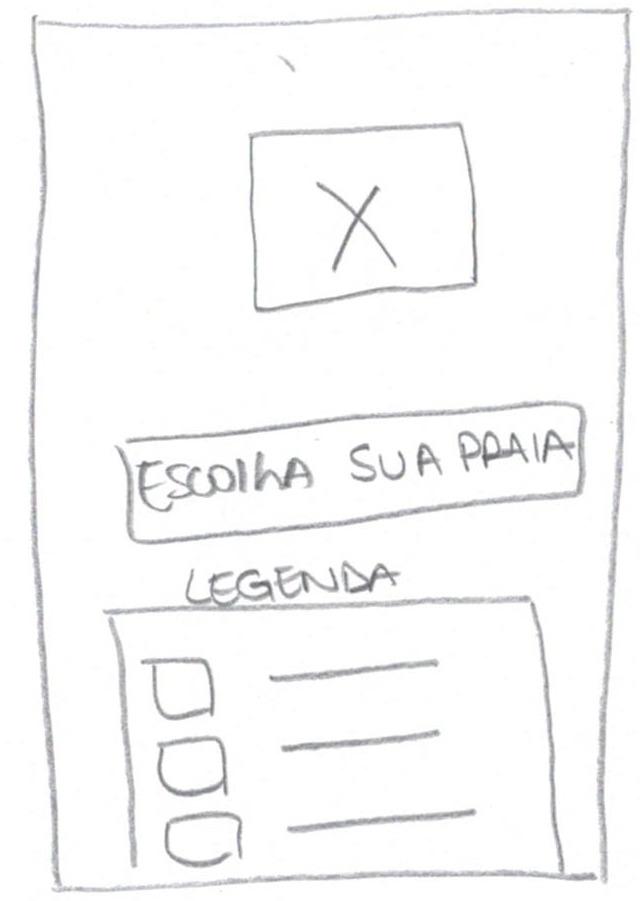 ESCOlhA SUA PRAIA
LEGENDA